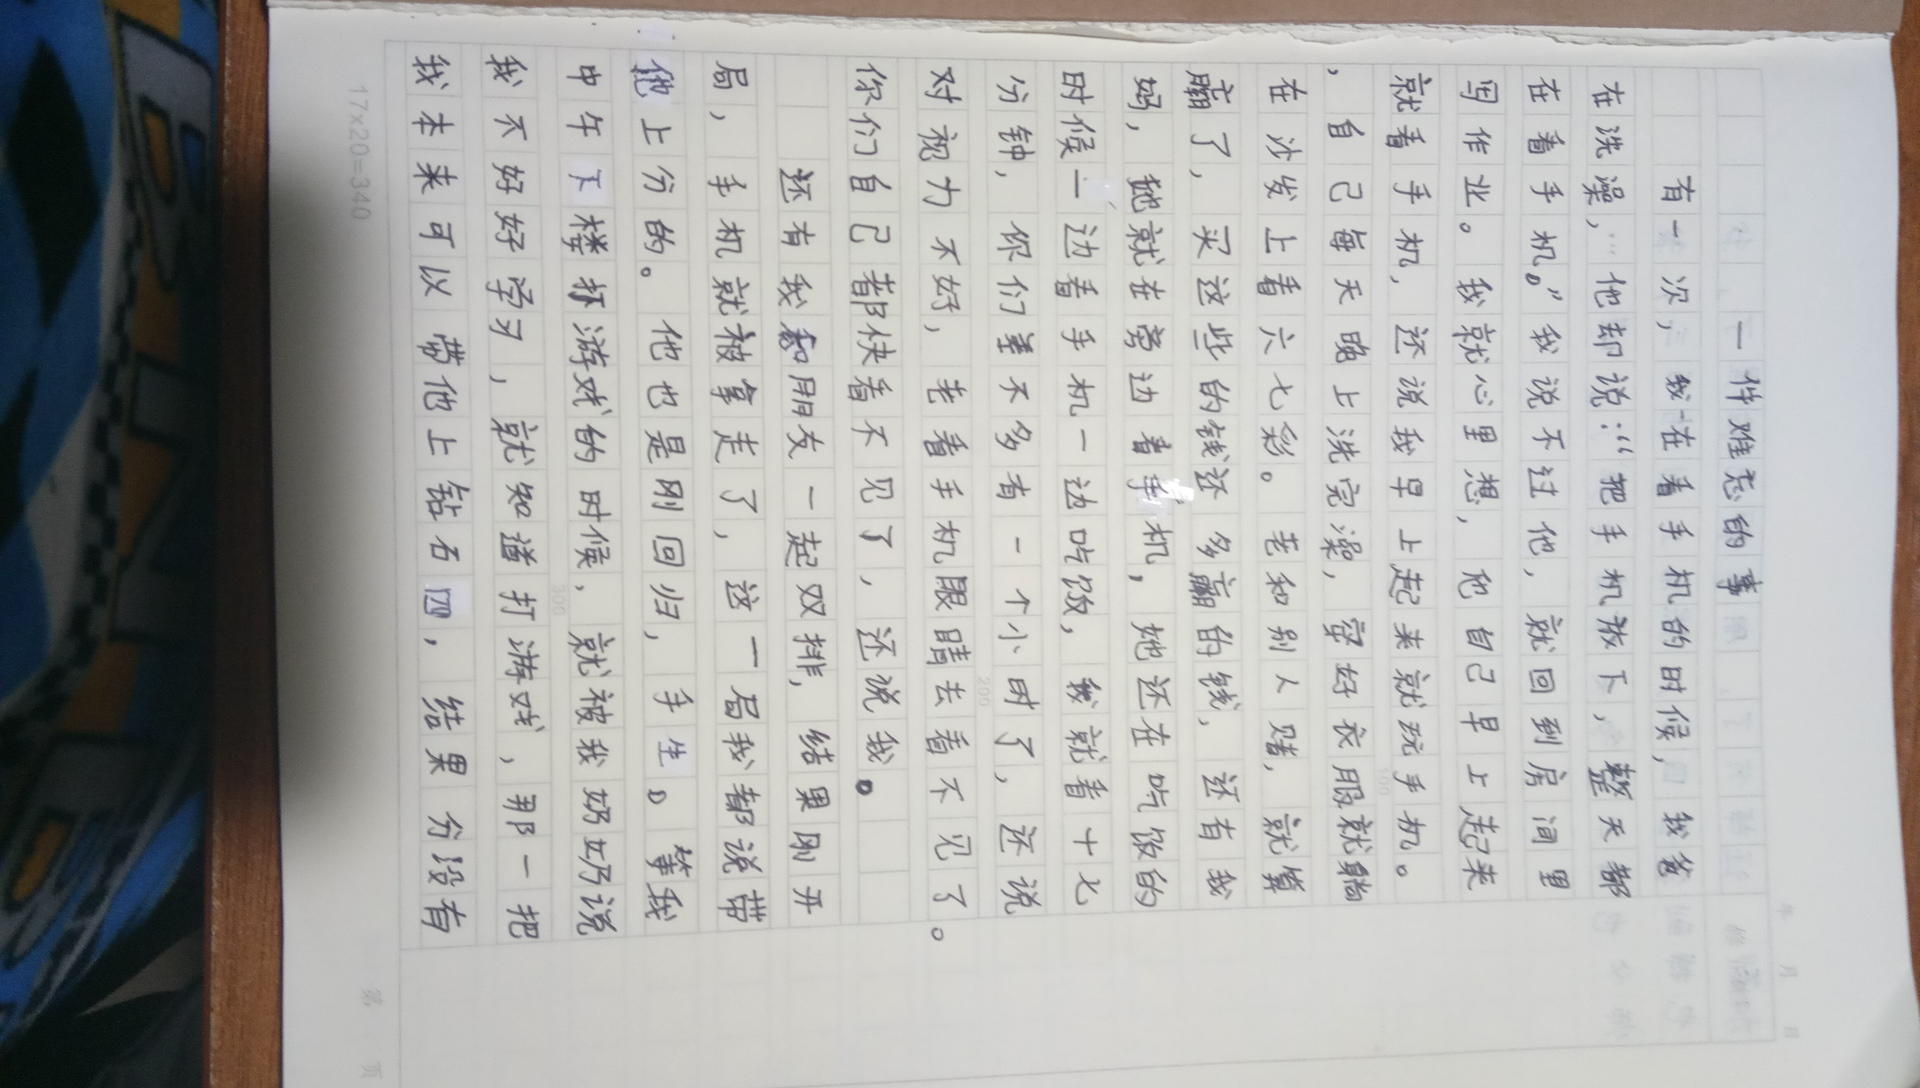 一件难忘的事
有一次，我在看手机的时候，我爸
在洗澡，他却说：“把手机放下，整天都
在看手机。”我说不过他，就回到房间里
写作业。我就心里想，他自己早上起来
就看手机，还说我早上起来就玩手机。
，自己每天晚上洗完澡，穿好衣服就躺
在沙发上看六七彩。老和别人赌，就算
赢了，买这些的钱还多赢的钱，还有我
妈，她就在旁边看手机，她还在吃饭的
时候一边看手机一边吃饭，我就看十七
分钟，你们差不多有一个小时了，还说
对视力不好，老看手机眼睛去看不见了。
你们自己都快看不见了，还说我。
还有我和朋友一起双排，结果刚开
局，手机就被拿走了，这一局我都说带
他上分的。他也是刚回归，手生。等我
中午下楼打游戏的时候，就被我奶奶说
我不好好学习，就知道打游戏，那一把
我本来可以带他上钻石四，结果分没有
17×20=340
100
200
300
年 月 日
第 页